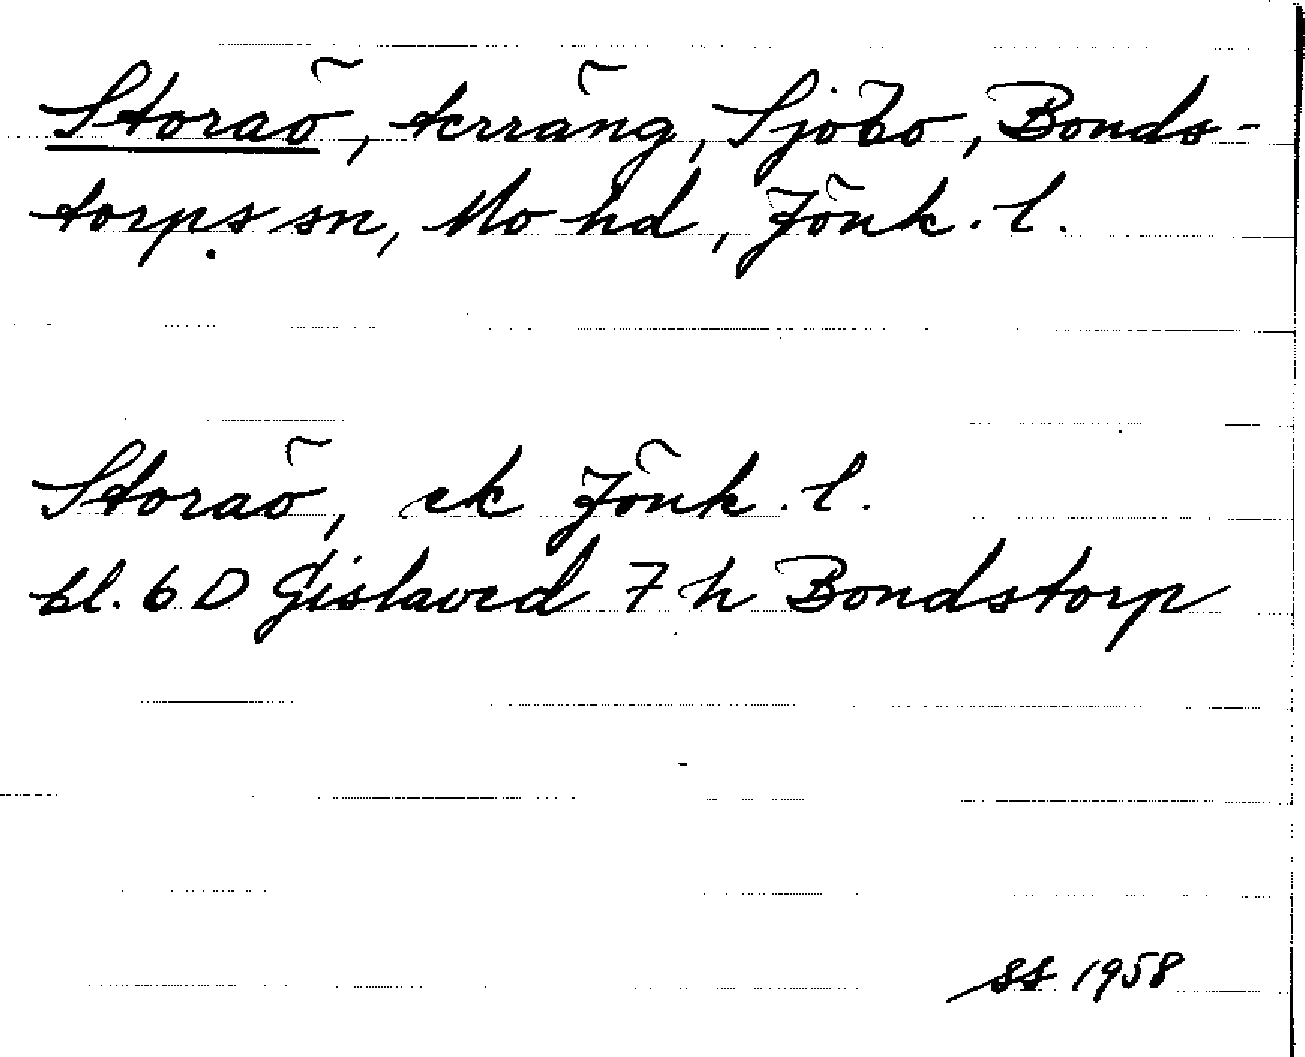 Storaö, terräng, Sjöbo, Bonds-
torps sn, Mo hd, Jönk. l.
Storaö, ek Jönk. l.
bl. 6 D Gislaved 7 h Bondstorp
SS 1958